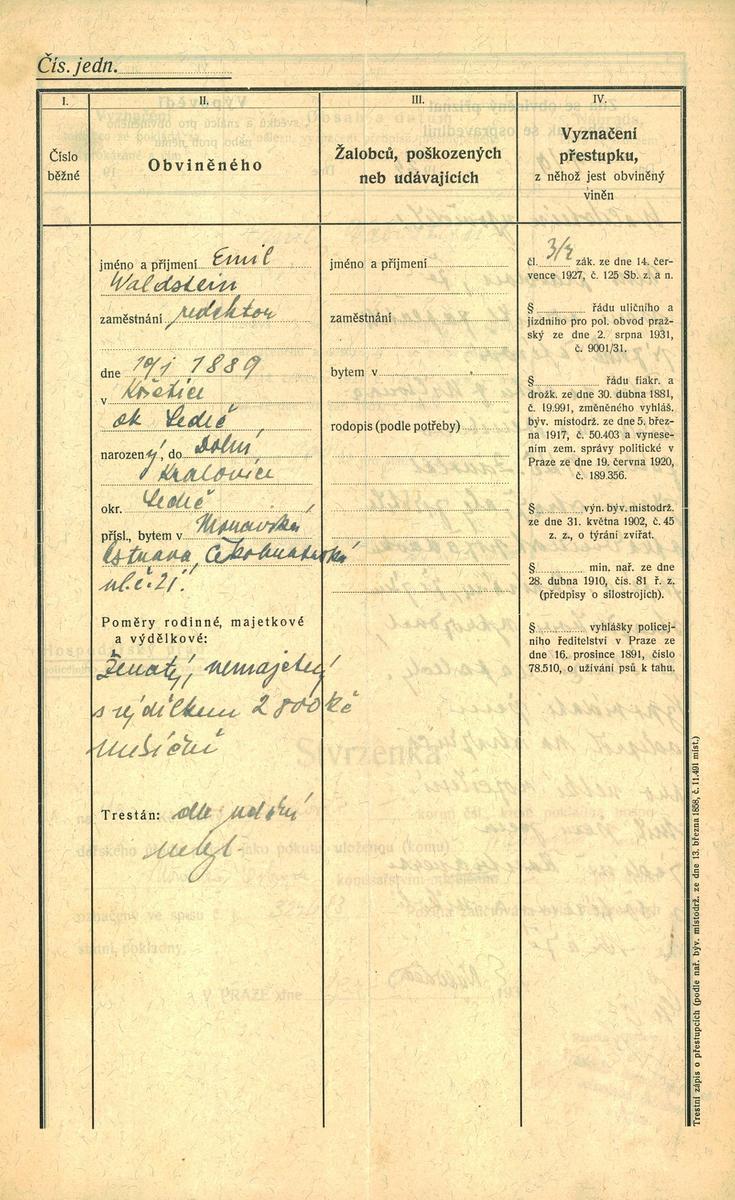 Čís. jedn.
I.
II.
III.
IV.
Číslo
běžné
Obviněného
Žalobců, poškozených
neb udávajících
Vyznačení
přestupku,
z něhož jest obviněný
viněn
jméno a příjmení Emil
Waldstein
zaměstnání redaktor
dne 19/1 1889
v Košetice
ok Ledeč
narozený, do Dolní
Kralovice
okr. Ledeč
přísl., bytem v Moravská
Ostrava,
ul. č. 21.
Poměry rodinné, majetkové
a výdělkové:
Ženatý, nemajetný
s výdělkem 2800 Kč
měsíčně
Trestán: dle udání
nebyl
jméno a příjmení
zaměstnání
bytem v
rodopis (podle potřeby)
čl. 3/2 zák. ze dne 14. čer-
vence 1927, č. 125 Sb. z. a n.
§ řádu uličního a
jízdního pro pol. obvod praž-
ský ze dne 2. srpna 1931,
č. 9001/31.
§ řádu fiakr. a
drožk. ze dne 30. dubna 1881,
č. 19.991, změněného vyhláš.
býv. místodrž. ze dne 5. břez-
na 1917, č. 50.403 a vynese-
ním zem. správy politické v
Praze ze dne 19. června 1920,
č. 189.356.
§ výn. býv. místodrž.
ze dne 31. května 1902, č. 45
z. z., o týrání zvířat.
§ min. nař. ze dne
28. dubna 1910, čís. 81 ř. z.
(předpisy o silostrojích).
§ vyhlášky policej-
ního ředitelství v Praze ze
dne 16. prosince 1891, číslo
78.510, o užívání psů k tahu.
Trestní zápis o přestupcích (podle nař. býv. místodrž. ze dne 13. března 1858, č. 11.491 míst.)